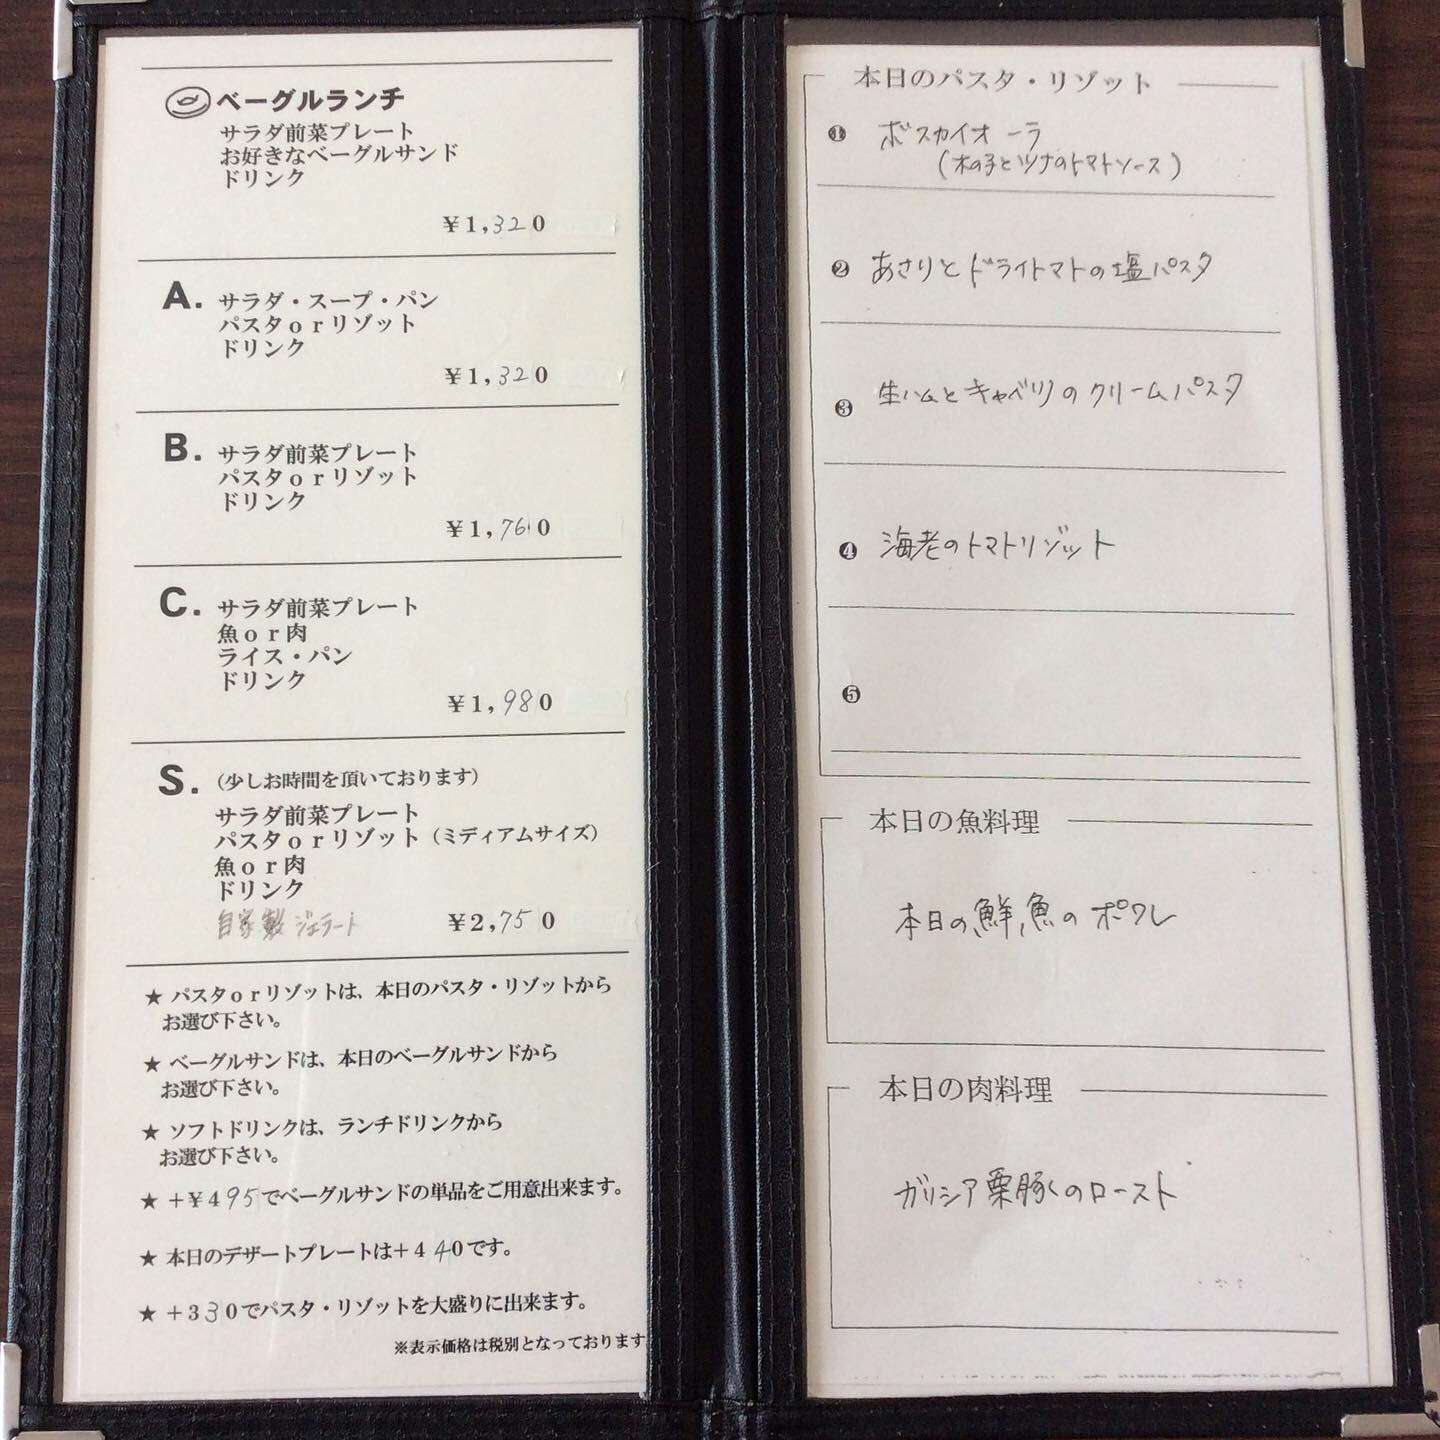 ベーグルランチ
サラダ前菜プレート
お好きなベーグルサンド
ドリンク
¥1,320
A. サラダ・スープ・パン
パスタorリゾット
ドリンク
¥1,320
B. サラダ前菜プレート
パスタorリゾット
ドリンク
¥1,760
C. サラダ前菜プレート
魚or肉
ライス・パン
ドリンク
¥1,980
S. (少しお時間を頂いております)
サラダ前菜プレート
パスタorリゾット(ミディアムサイズ)
魚or肉
ドリンク
自家製ジェラート ¥2,750
★ パスタorリゾットは、本日のパスタ・リゾットから
お選び下さい。
★ ベーグルサンドは、本日のベーグルサンドから
お選び下さい。
★ ソフトドリンクは、ランチドリンクから
お選び下さい。
★ +¥495でベーグルサンドの単品をご用意出来ます。
★ 本日のデザートプレートは+440です。
★ +330でパスタ・リゾットを大盛りに出来ます。
※表示価格は税別となっております
本日のパスタ・リゾット
❶ ボスカイオーラ
(木の子とツナのトマトソース)
❷ あさりとドライトマトの塩パスタ
❸ 生ハムとキャベツのクリームパスタ
❹ 海老のトマトリゾット
❺
本日の魚料理
本日の鮮魚のポワレ
本日の肉料理
ガリシア栗豚くのロースト